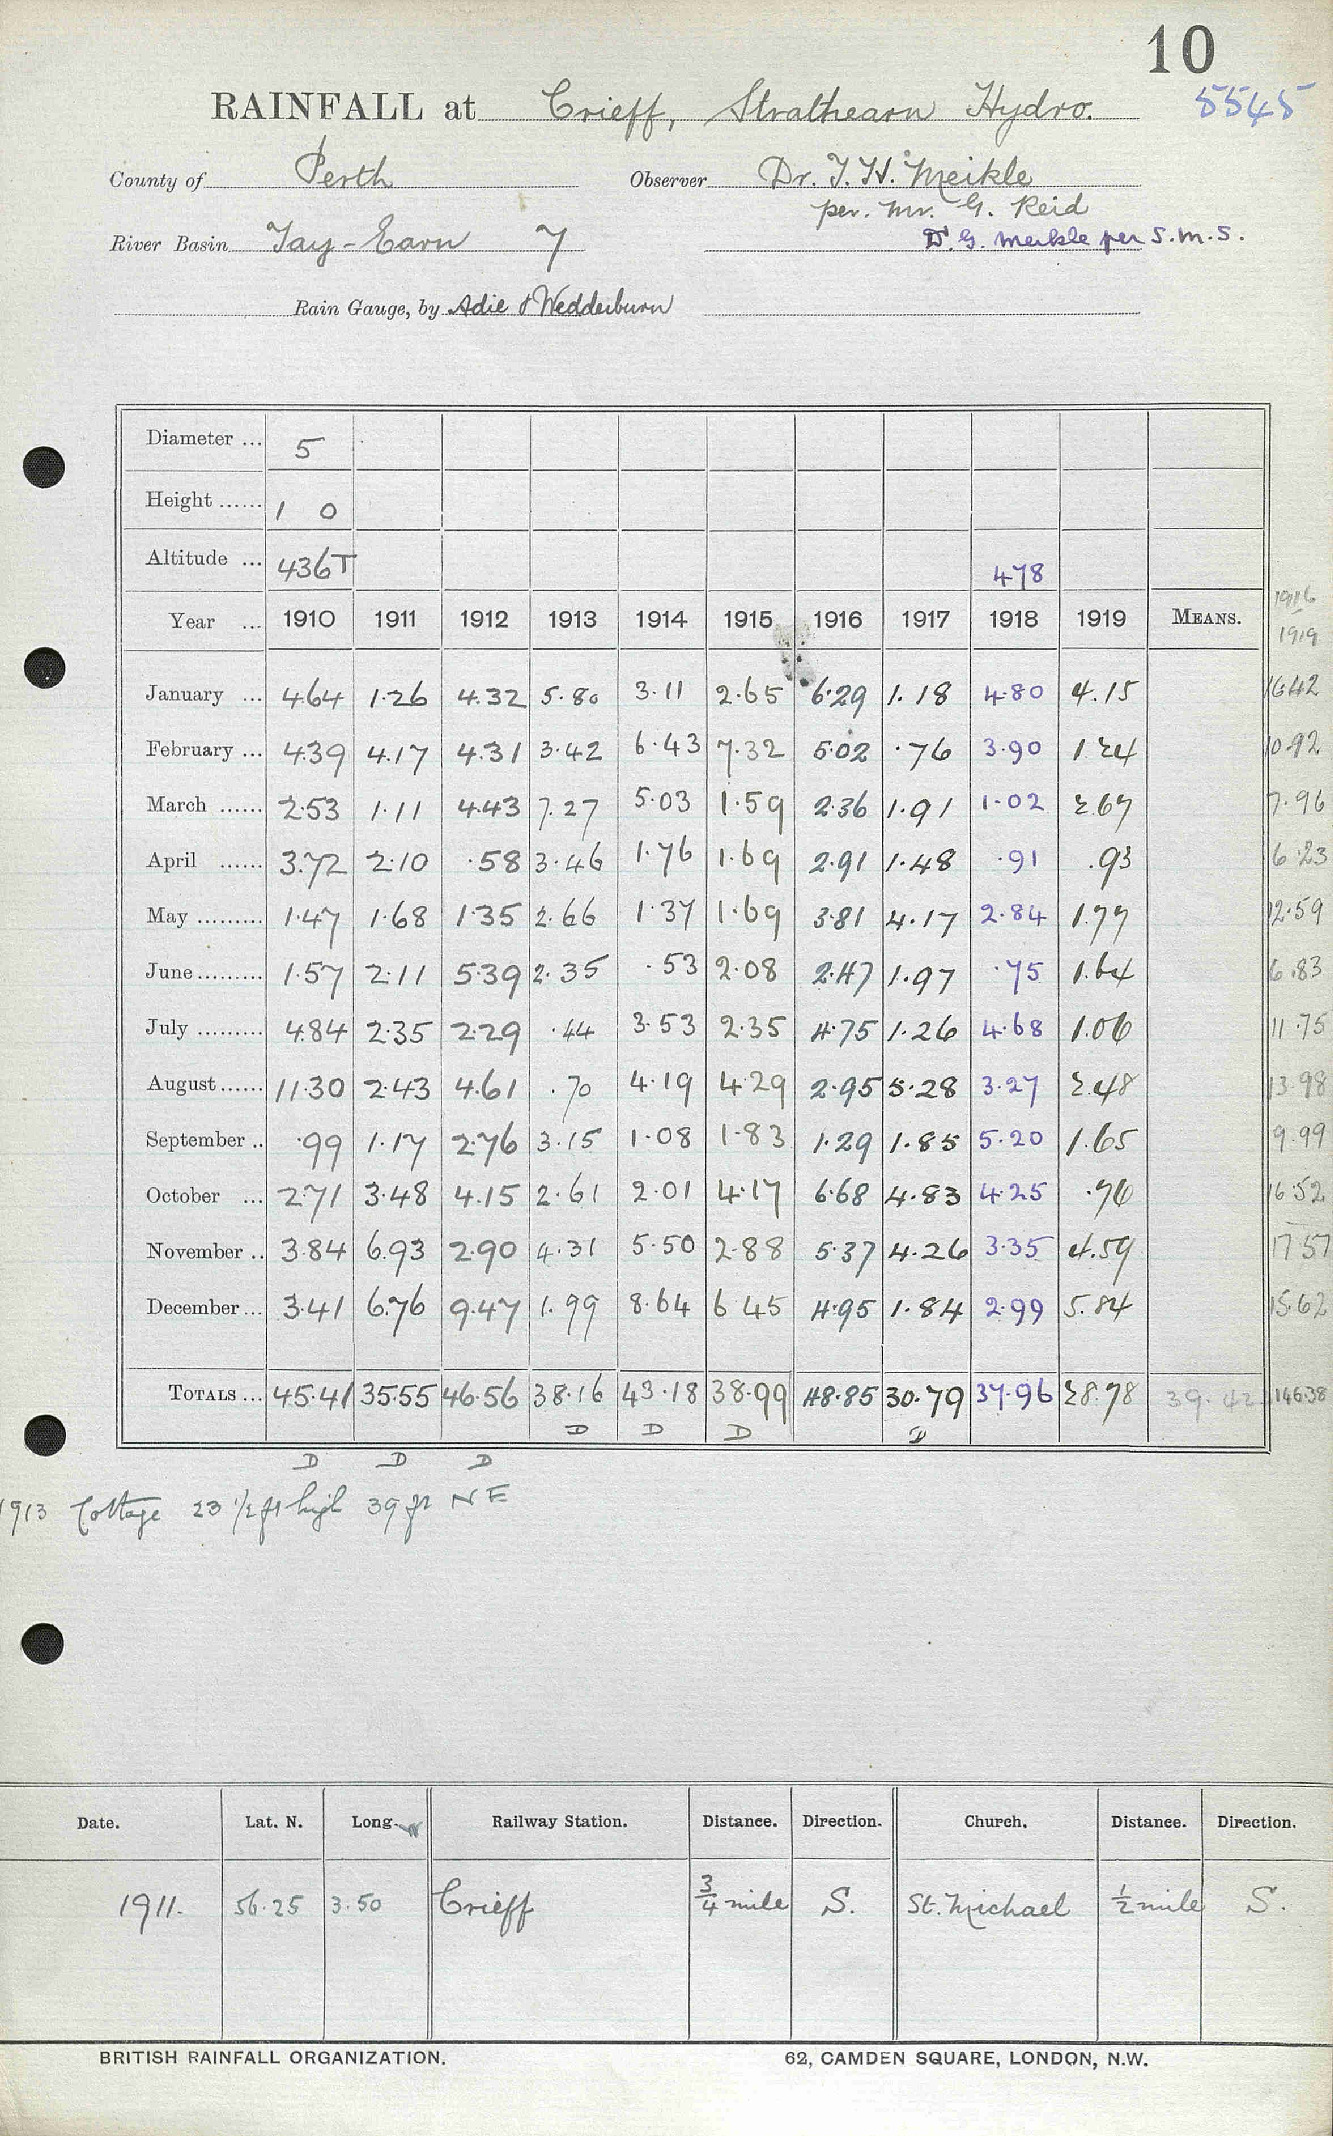 10
RAINFALL at Crieff, Strathearn Hydro. 5545
County of Perth Observer Dr. T. H. Meikle
per. Mr. G. Reid
River Basin Tay - Earn 7 Dr. G. Meikle per S.M.S.
Rain Gauge, by Adie & Wedderburn
Diameter ... 5
Height ...... 1 0
Altitude ... 436T 478
1916
Year ... 1910 1911 1912 1913 1914 1915 1916 1917 1918 1919 MEANS. 1919
January ... 4.64 1.26 4.32 5.80 3.11 2.65 6.29 1.18 4.80 4.15 16.42
February ... 4.39 4.17 4.31 3.42 6.43 7.32 5.02 .76 3.90 1.24 10.92
March ...... 2.53 1.11 4.43 7.27 5.03 1.59 2.36 1.91 1.02 2.67 7.96
April ...... 3.72 2.10 .58 3.46 1.76 1.69 2.91 1.48 .91 .93 6.23
May ......... 1.47 1.68 1.35 2.66 1.37 1.69 3.81 4.17 2.84 1.77 12.59
June......... 1.57 2.11 5.39 2.35 .53 2.08 2.47 1.97 .75 1.64 6.83
July ......... 4.84 2.35 2.29 .44 3.53 2.35 4.75 1.26 4.68 1.06 11.75
August...... 11.30 2.43 4.61 .70 4.19 4.29 2.95 5.28 3.27 2.48 13.98
September .. .99 1.17 2.76 3.15 1.08 1.83 1.29 1.85 5.20 1.65 9.99
October ... 2.71 3.48 4.15 2.61 2.01 4.17 6.68 4.83 4.25 .76 16.52
November .. 3.84 6.93 2.90 4.31 5.50 2.88 5.37 4.26 3.35 4.59 17.57
December ... 3.41 6.76 9.47 1.99 8.64 6.45 4.95 1.84 2.99 5.84 15.62
TOTALS ... 45.41 35.55 46.56 38.16 43.18 38.99 48.85 30.79 37.96 28.78 39.42 146.38
D D D D
D D D
1913 Cottage 23 1/2 ft high 39 ft NE
Date. Lat. N. Long. W Railway Station. Distance. Direction. Church. Distance. Direction.
1911. 56.25 3.50 Crieff 3/4 mile S. St. Michael 1/2 mile S.
BRITISH RAINFALL ORGANIZATION. 62, CAMDEN SQUARE, LONDON, N.W.